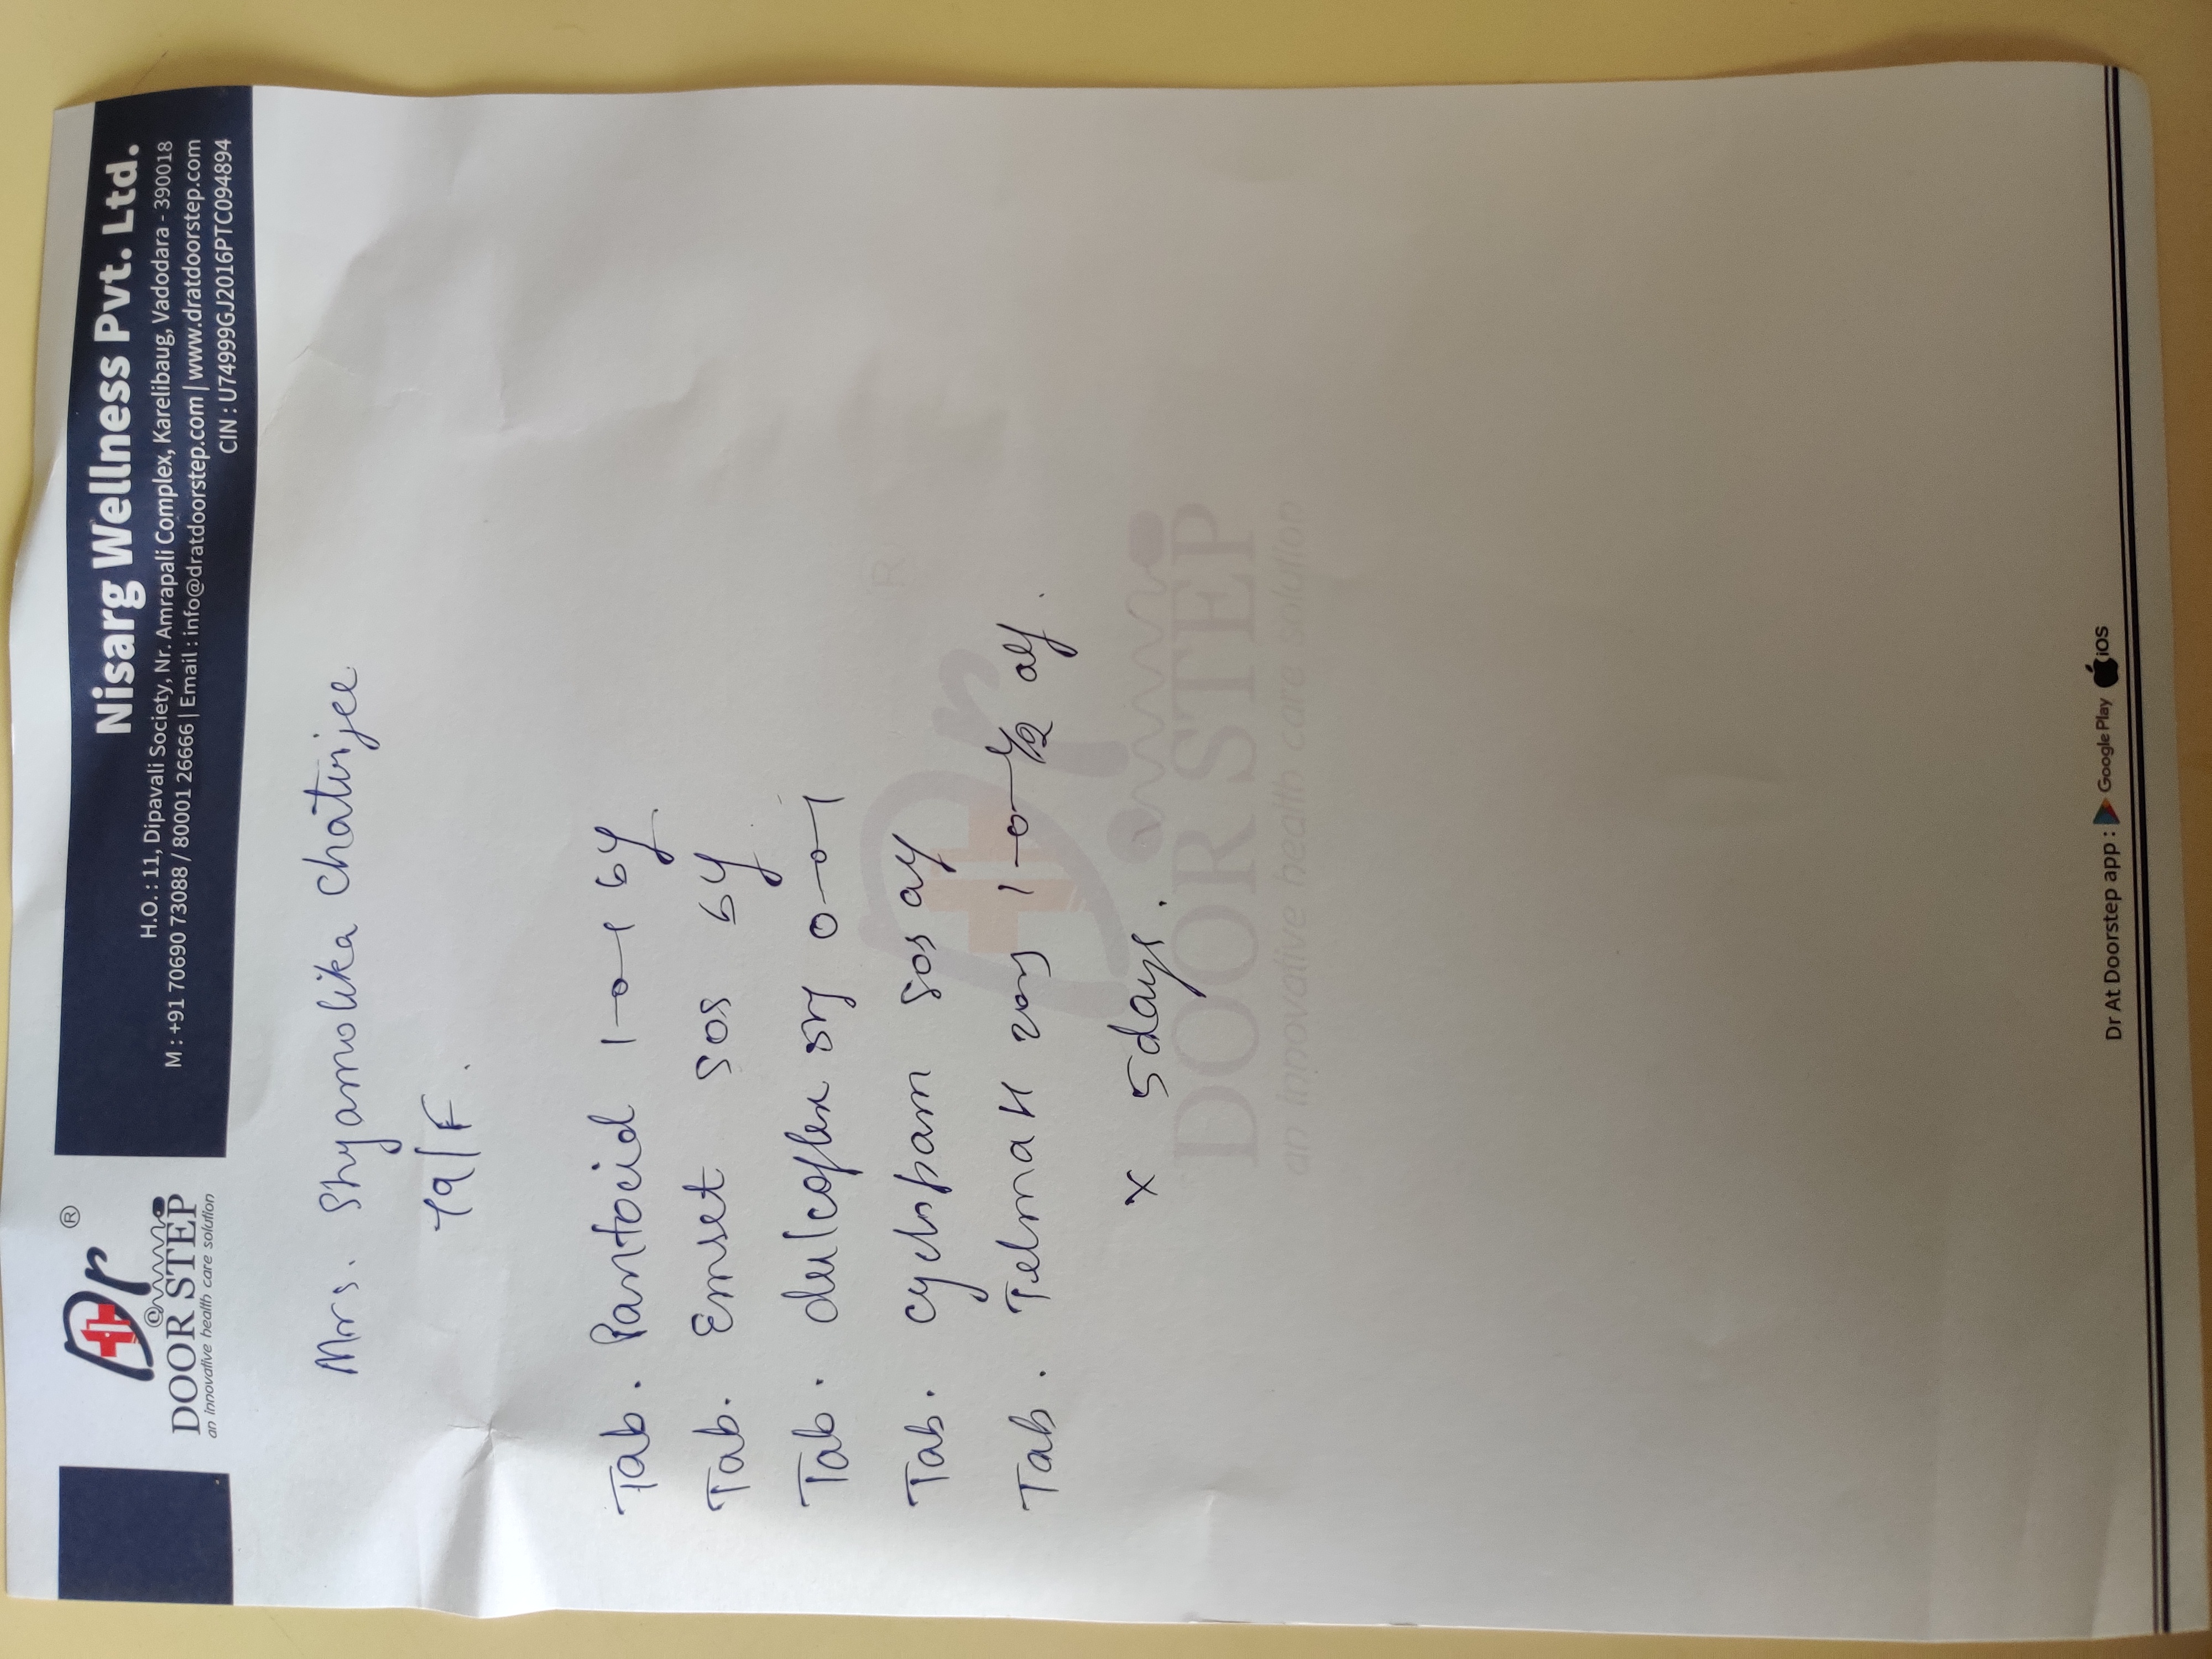 Dr
®
@
DOOR STEP
an innovative health care solution
Nisarg Wellness Pvt. Ltd.
H.O. : 11, Dipavali Society, Nr. Amrapali Complex, Karelibaug, Vadodara - 390018
M : +91 70690 73088 / 80001 26666 | Email : info@dratdoorstep.com | www.dratdoorstep.com
CIN : U74999GJ2016PTC094894
Mrs. Shyamolika Chatterjee
79/F.
Tab. Pantocid 1-0-1 by
Tab. Emset SOS by
Tab. dulcoflex 0-0-1
Tab. cyclopam SOS af
Tab. Telma H 1-0-1/2 af.
x 5 days.
Dr
R
DOOR STEP
an innovative health care solution
Dr At Doorstep app : Google Play iOS